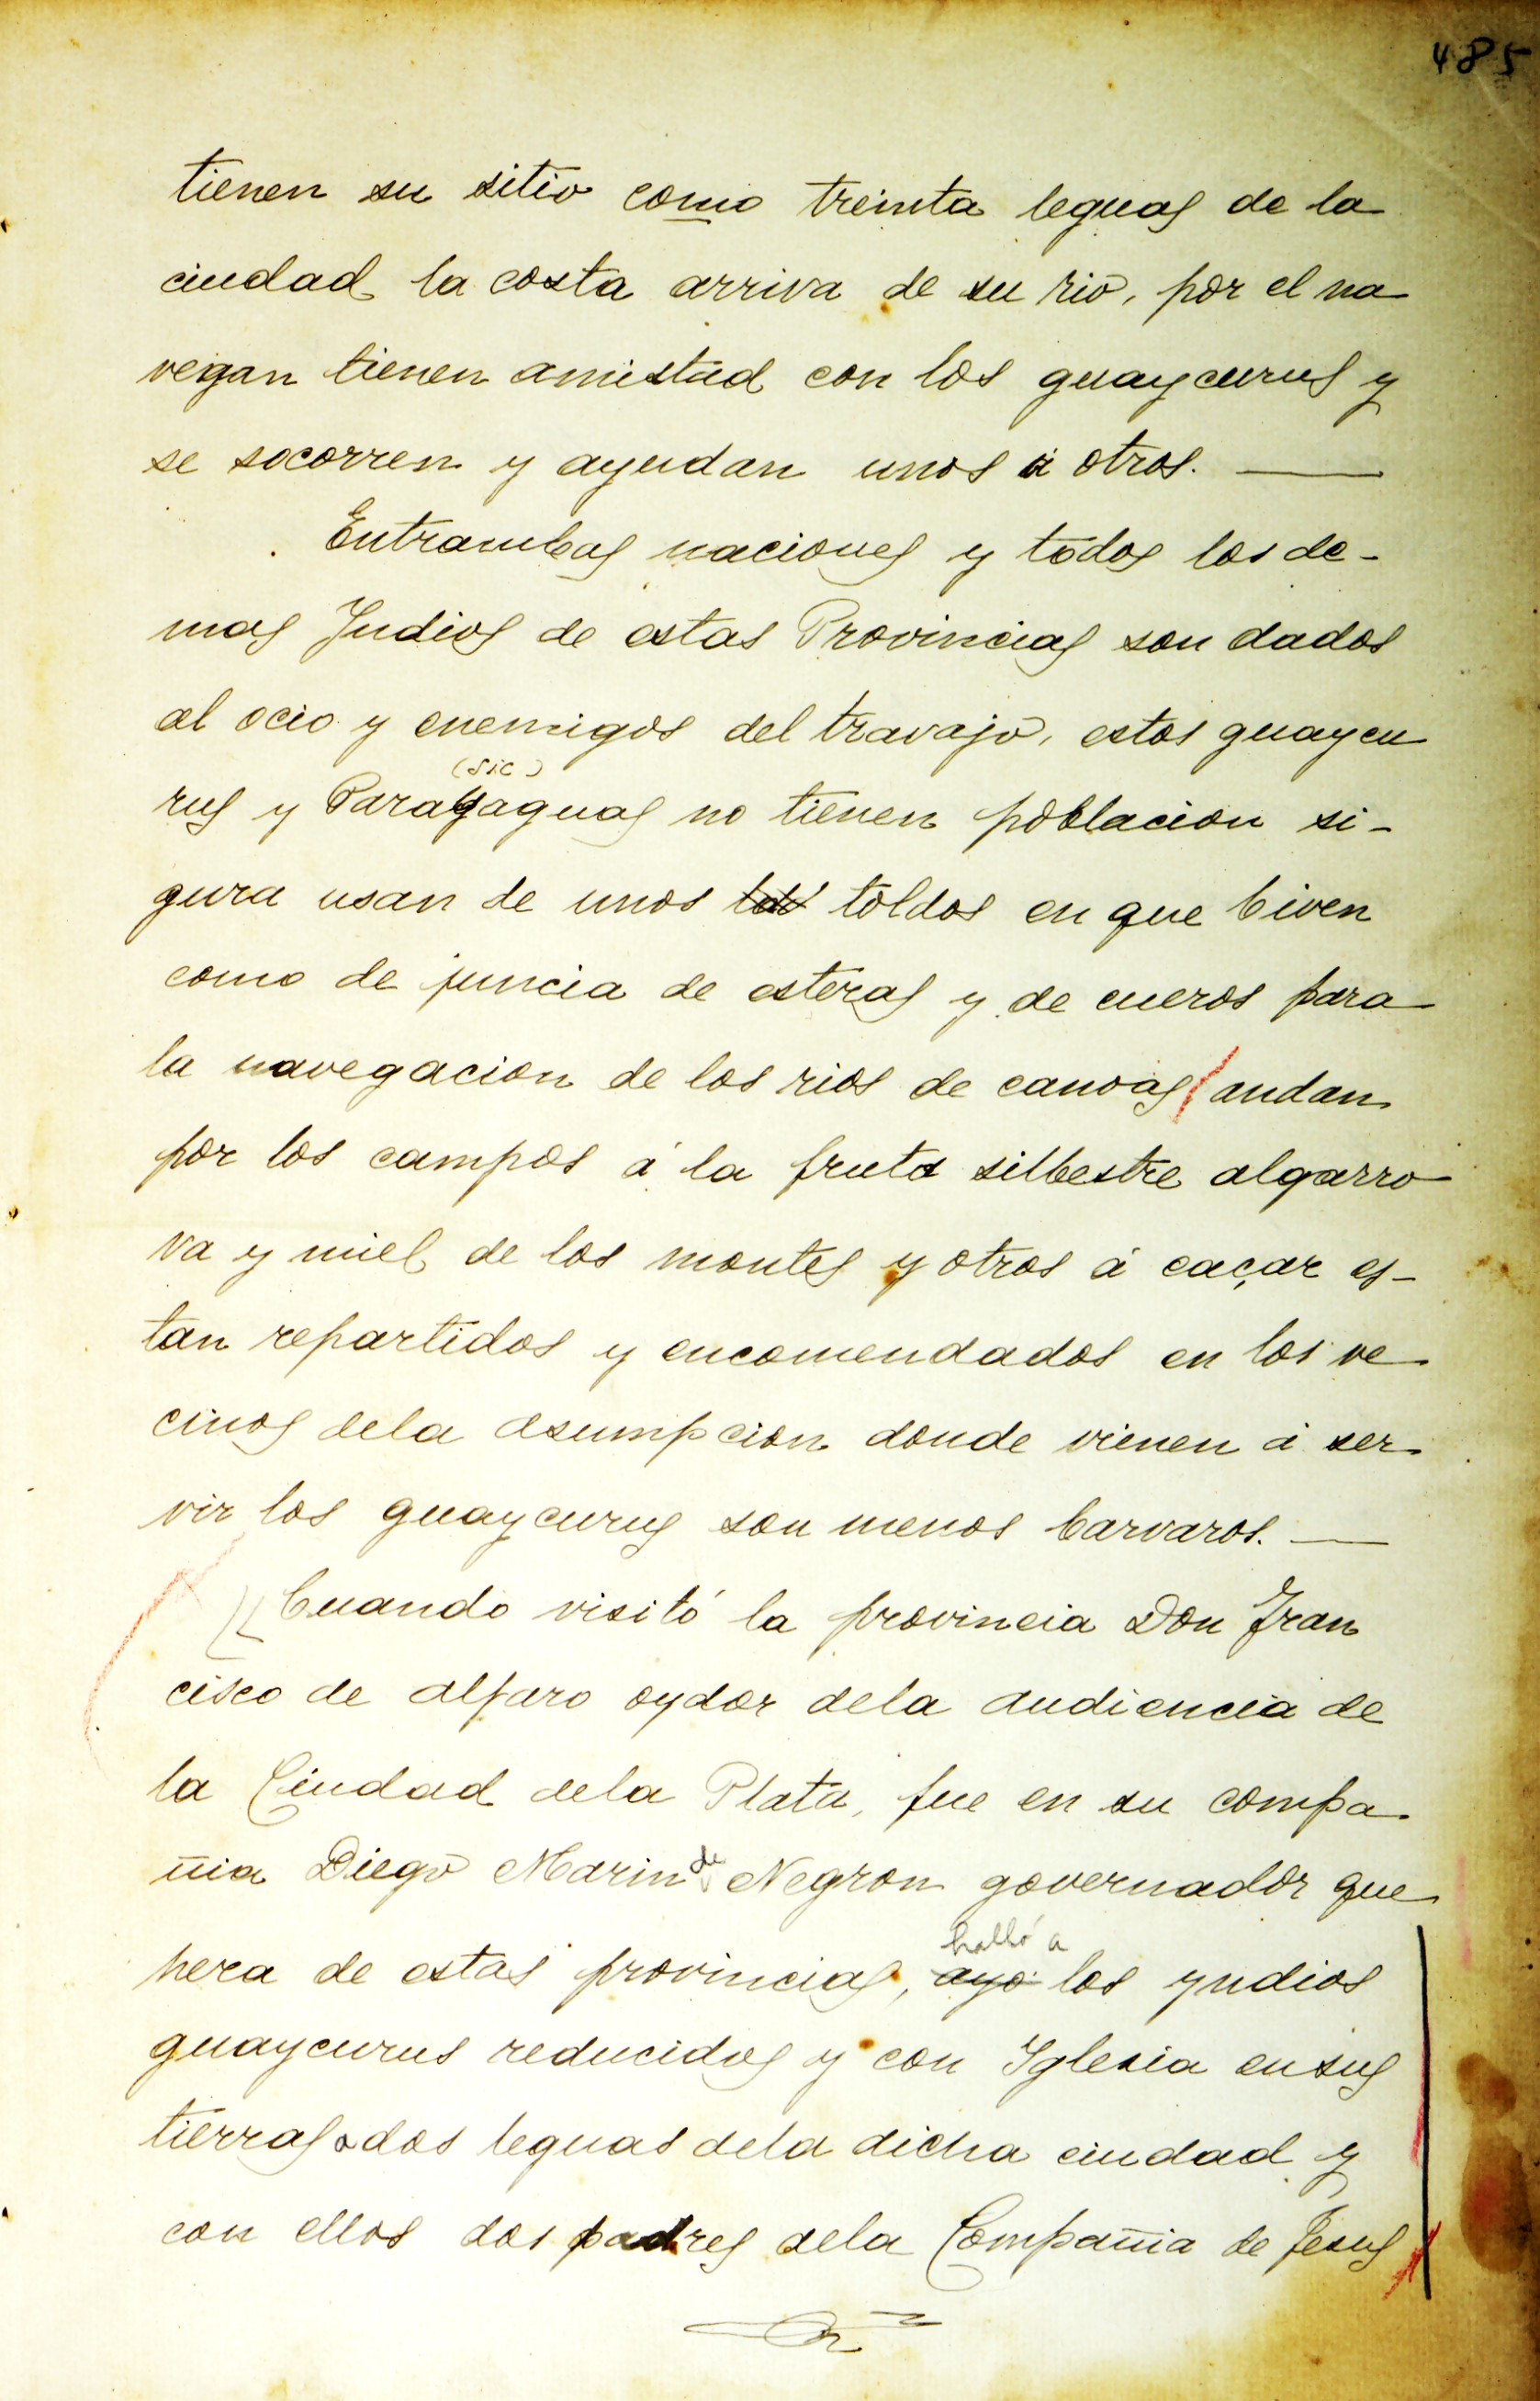 485
tienen su sitio como treinta leguas de la
ciudad la costa arriva de su rio, por el na
vegan tienen amistad con los guaycurus y
se socorren y ayudan unos á otros. —
Entrambas naciones y todos los de-
mas Indios de estas Provincias son dados
al ocio y enemigos del travajo, estos guaycu
(sic)
rus y Parayaguas no tienen poblacion si-
gura usan de unos tol toldos en que biven
como de juncia de esteras y de cueros para
la navegacion de los rios de canoas / andan
por los campos á la fruta silbestre algarro
va y miel de los montes y otros á caçar es-
tan repartidos y encomendados en los ve
cinos dela Asumpcion donde vienen á ser
vir los guaycurus son menos barvaros. —
Cuando visitó la provincia Don Fran
cisco de alfaro oydor dela audiencia de
la Ciudad dela Plata, fue en su compa
ñia Diego Marin de Negron governador que
halló a
hera de estas provincias, ayo los yndios
guaycurus reducidos y con Iglesia en sus
tierras a dos leguas dela dicha ciudad y
con ellos dos padres dela Compañia de Jesus